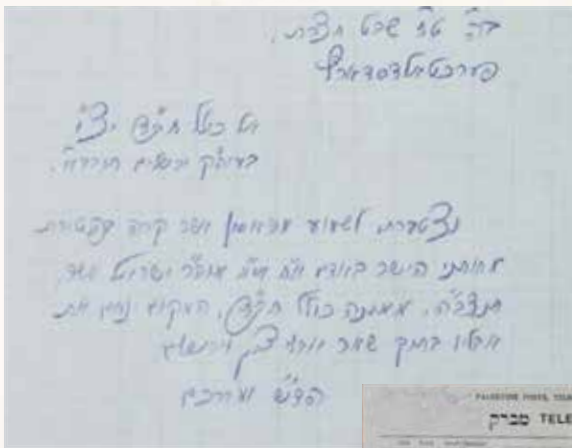 ב"ה ט"ו שבט
פערכטאלדסדארף
אל כולל חב"ד יצ"ו
בעיה"ק ירושלים תובב"א.
נצטערתי לשמוע מהאסון אשר קרה בפטירת
מחותני הישר באדם ישראל
כולל חב"ד, המקום ינחם את
אבליו בתוך שאר אבלי ציון וירושלים
הדו"ש ומברכם
PALESTINE POSTS, TELE
מברק TELE